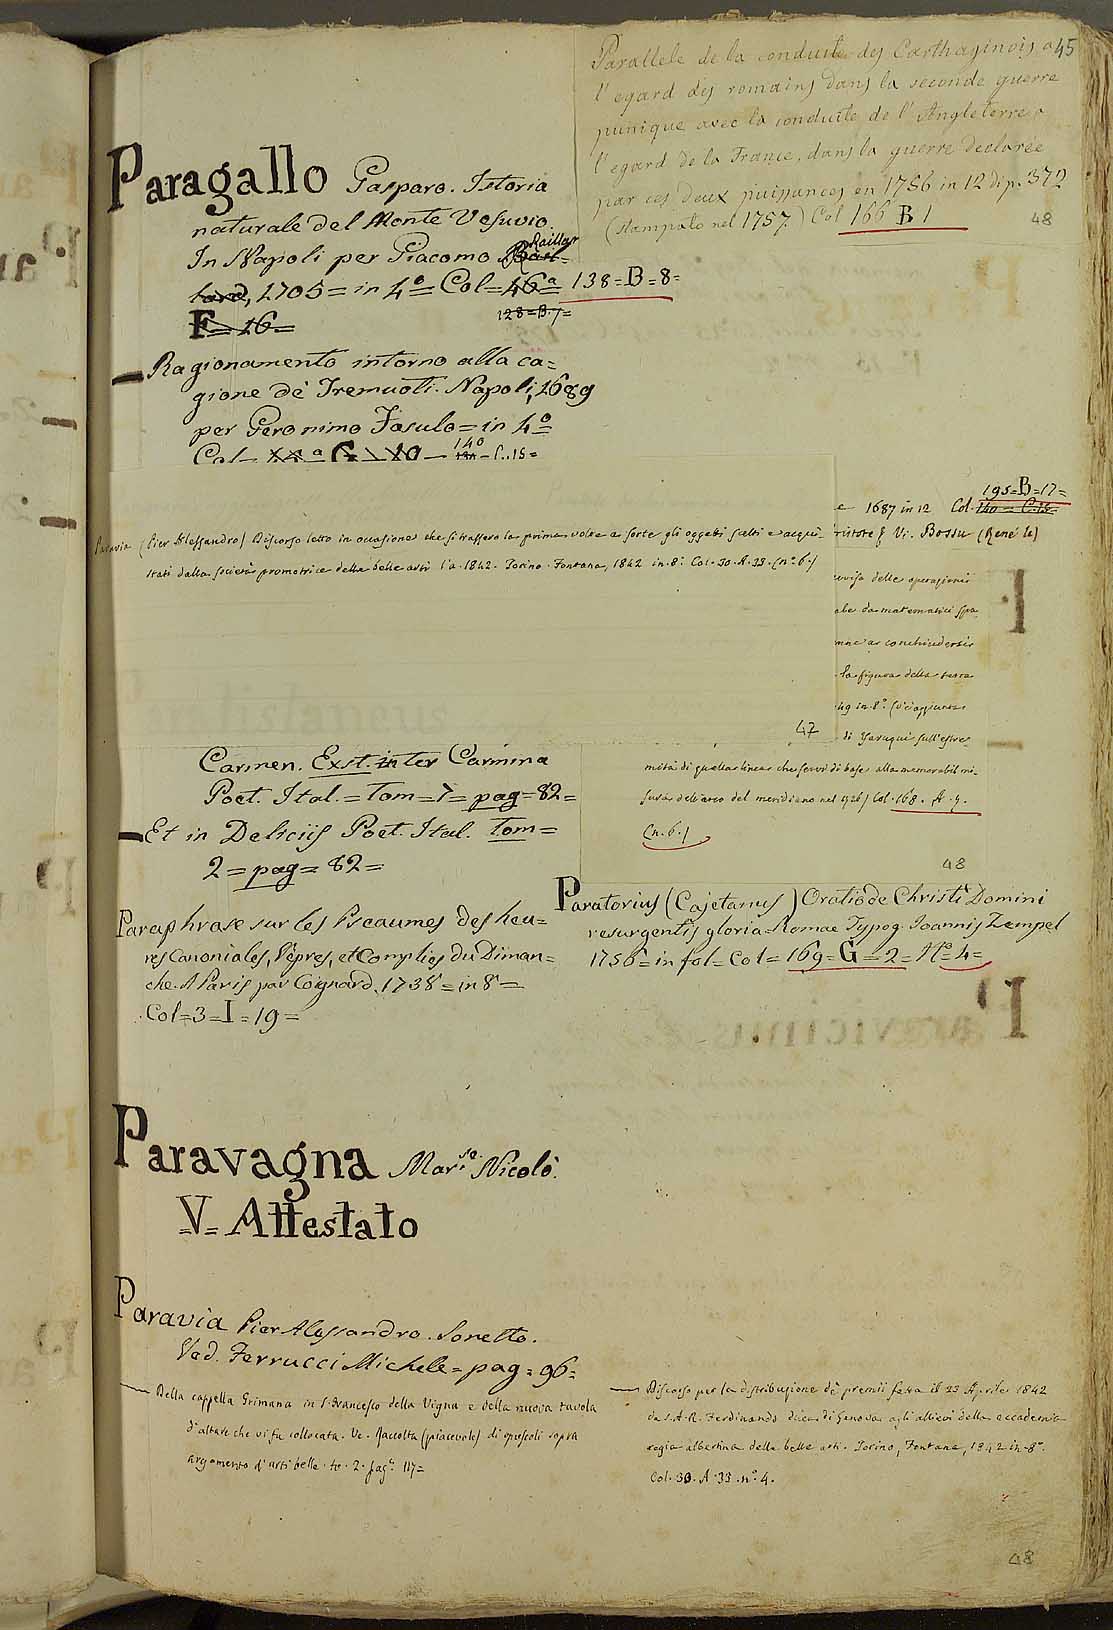 Parallele de la conduite des Carthaginois a
l'egard des romains dans la seconde guerre
punique avec la conduite de l'Angleterre a
l'egard de la France, dans la guerre declarée
par ces deux puissances en 1756 in 12 di p. 372
(stampato nel 1757.) Col 166 B 1
45
48
Paragallo Gasparo. Istoria
naturale del Monte Vesuvio.
In Napoli per Giacomo Raillar
tard, 1705 = in 4º = Col = 46ª = 138 = B = 8 =
F = 16 =
128 = B. 7 =
— Ragionamento intorno alla ca=
gione de' Tremuoti. Napoli, 1689
per Geronimo Fasulo = in 4º
Col G 10 — 140 — C. 15 =
Paravia (Pier Alessandro) Discorso letto in occasione che si trassero la prima volta a sorte gli oggetti scelti e acqui=
stati dalla società promotrice delle belle arti l'a. 1842. Torino. Fontana, 1842 in 8º. Col. 30. A. 33. (nº. 6.)
47
e 1687 in 12 Col. 140 = C. 15 =
195 = B = 17 =
ristote & Vi. Bossu (René le)
delle operazioni
da matematici spa
conchiudersi
la figura della terra
in 8º.
di Yaruqui sull'estre
mità di quella linea che servì di base alla memorabil mi=
sura dell'arco del meridiano nel 1736) Col. 168. A. 9.
(n. 6.)
48
Carmen. Exst. inter Carmina
Poet. Ital. = Tom = 7 = pag = 82 =
— Et in Deliciis Poet. Ital. Tom =
2 = pag = 82 =
Paraphrase sur les Pseaumes des heu=
res Canoniales, Vêpres, et Complies du Diman=
che. A Paris par Coignard. 1738 = in 8º =
Col = 3 = I = 19 =
Paratorius (Cajetanus) Oratio de Christi Domini
resurgentis gloria = Romae Typog. Joannis Zempel
1756 = in fol = Col = 169 = G = 2 = Nº = 4 =
Paravagna Mar.se Nicolò.
V = Attestato
Paravia Pier Alessandro. Sonetto.
Ved. Ferrucci Michele = pag = 96 =
— Della cappella Grimana in S. Francesco della Vigna e della nuova tavola
d'altare che vi fu collocata. Ve. Raccolta (piacevole) di opuscoli sopra
argomento d'arti belle. to. 2. pag. 117 =
— Discorso per la distribuzione de' premii fatta il 23 Aprile 1842
da S. A. R. Ferdinando duca di Genova agli allievi della accademia
regia albertina delle belle arti. Torino, Fontana, 1842 in 8º.
Col. 30. A. 33. nº. 4.
48